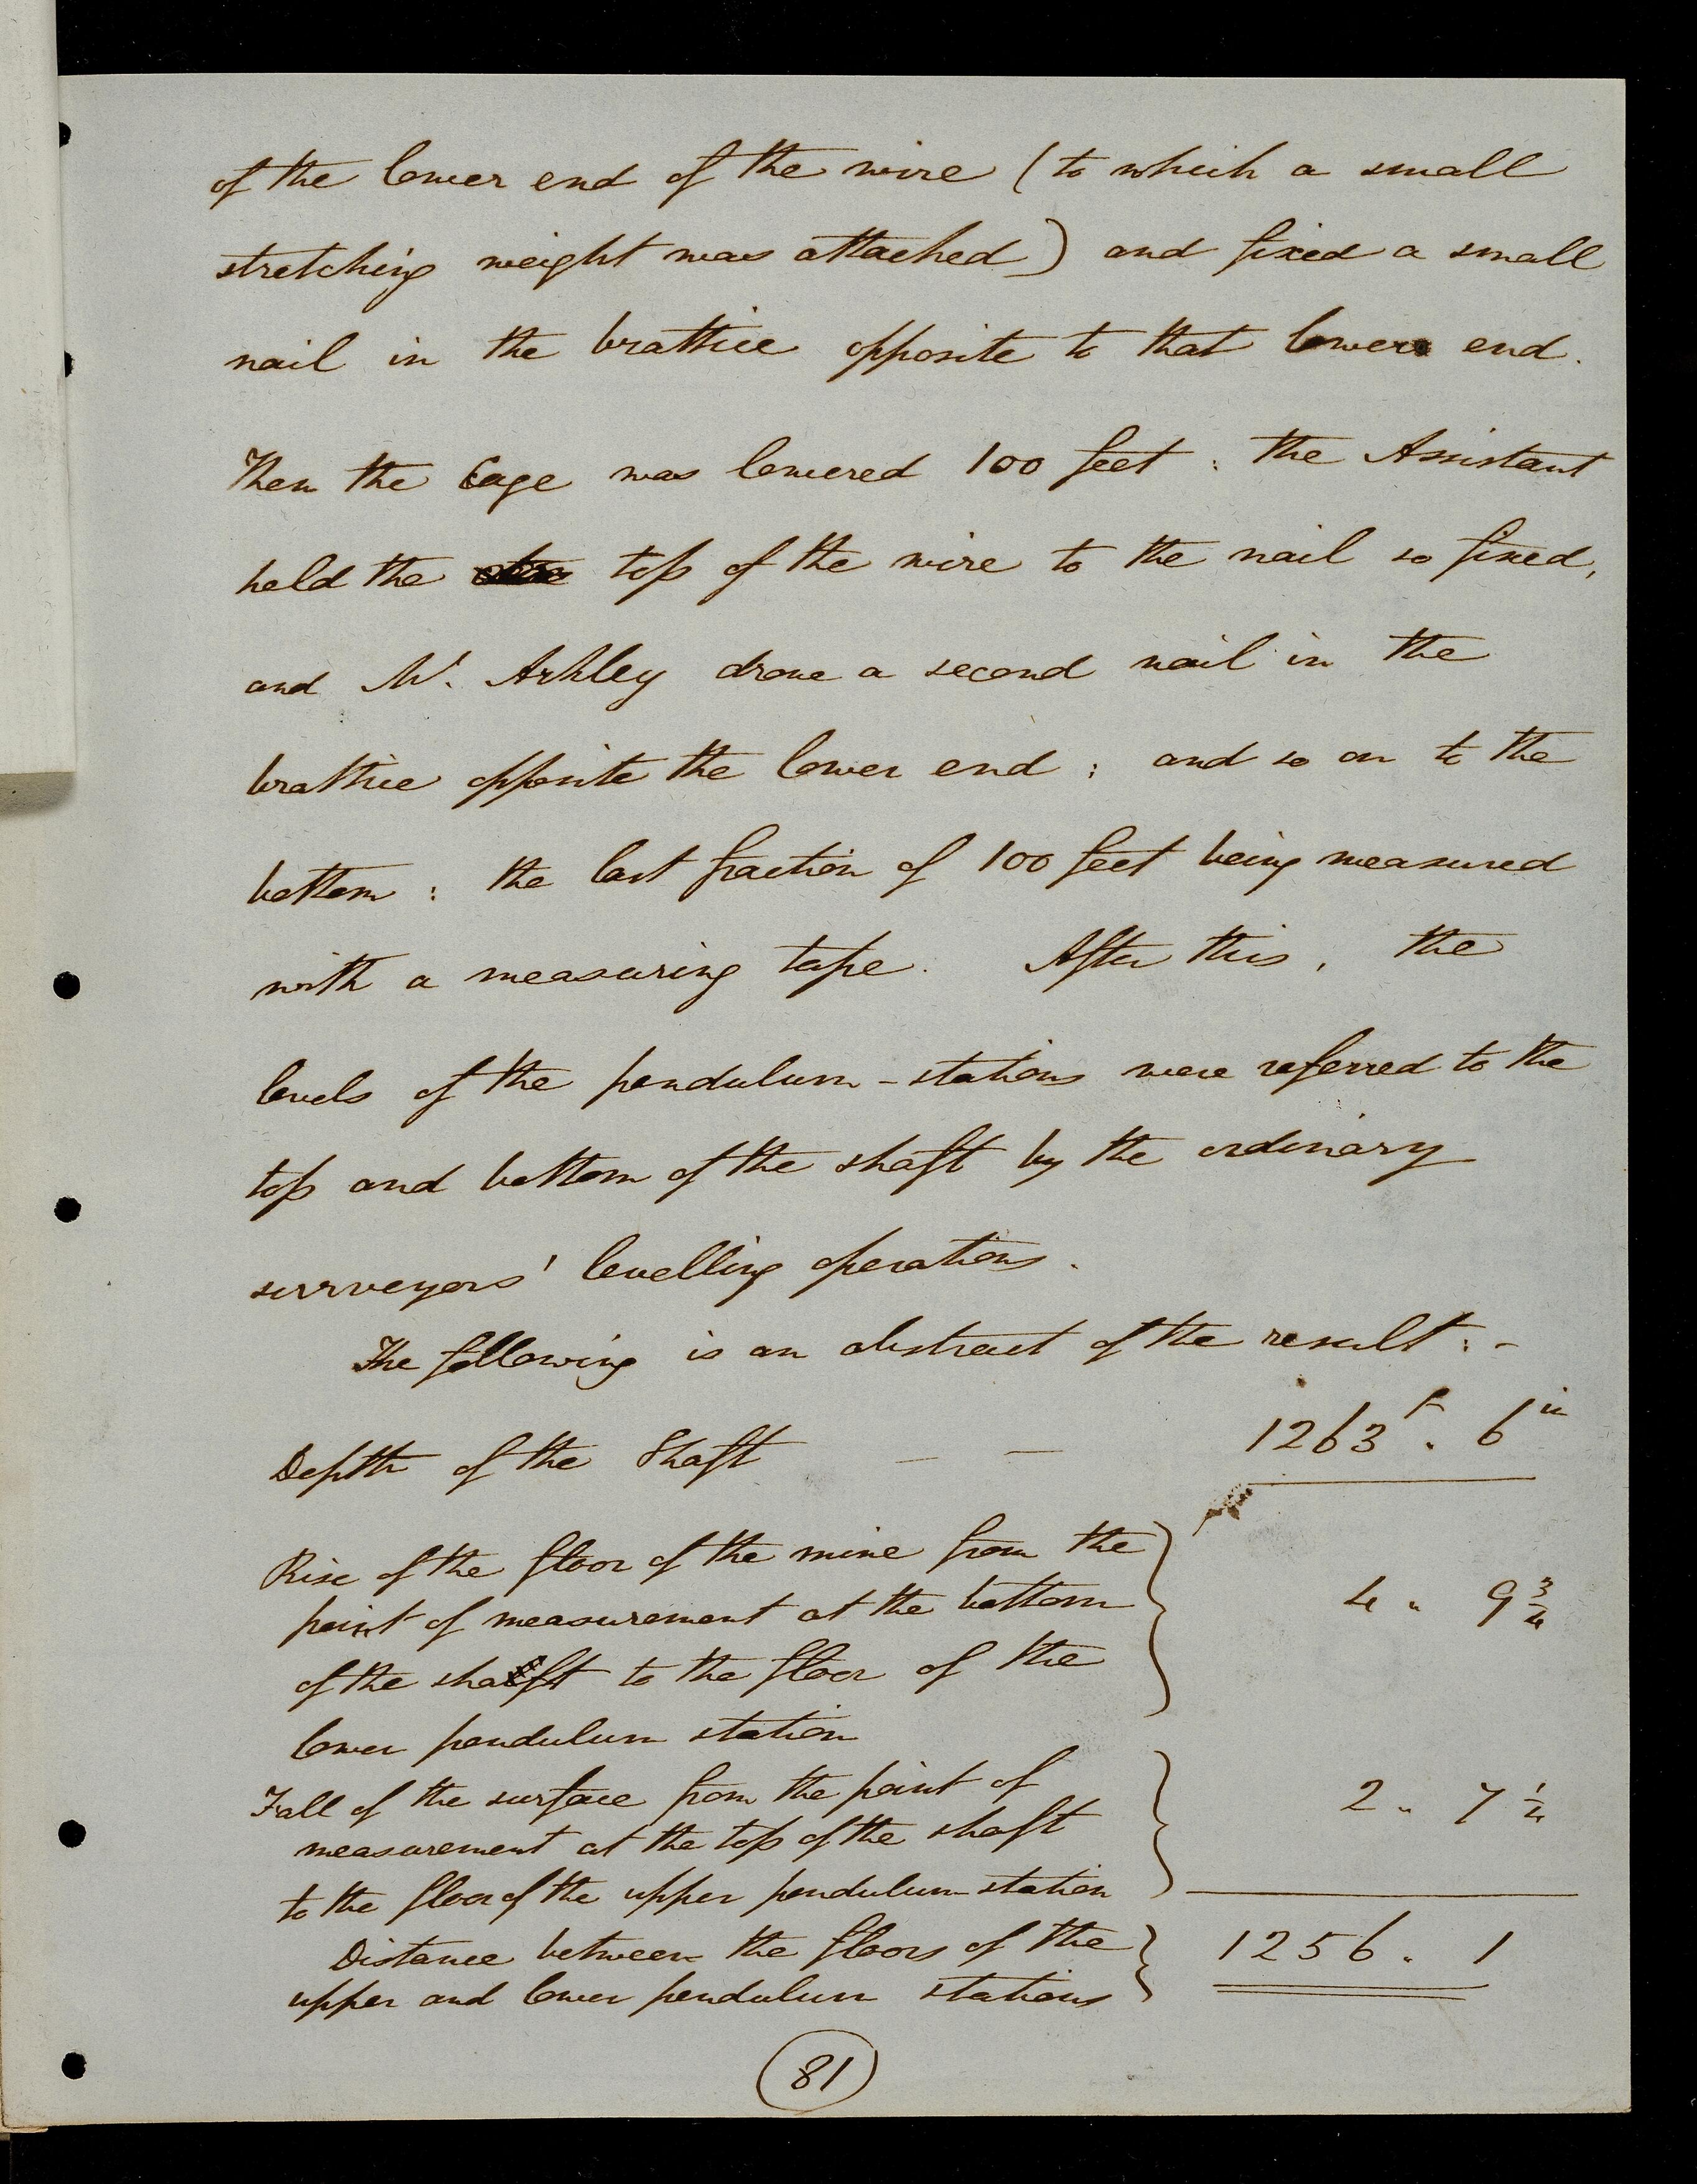 of the lower end of the wire (to which a small
stretching weight was attached) and fixed a small
nail in the brattice opposite to that lower end.
Then the Cage was lowered 100 feet : the Assistant
held the top of the wire to the nail so fixed,
and Mr. Arkley drove a second nail in the
brattice opposite the lower end : and so on to the
bottom : the last fraction of 100 feet being measured
with a measuring tape. After this, the
levels of the pendulum-stations were referred to the
top and bottom of the shaft by the ordinary
surveyors' levelling operations.
The following is an abstract of the result :-
Depth of the Shaft — — 1263 f. 6 in
Rise of the floor of the mine from the
point of measurement at the bottom 4 " 9 3/4
of the shaft to the floor of the
lower pendulum station
Fall of the surface from the point of
measurement at the top of the shaft 2 " 7 1/4
to the floor of the upper pendulum station
Distance between the floors of the 1256 " 1
upper and lower pendulum stations
81